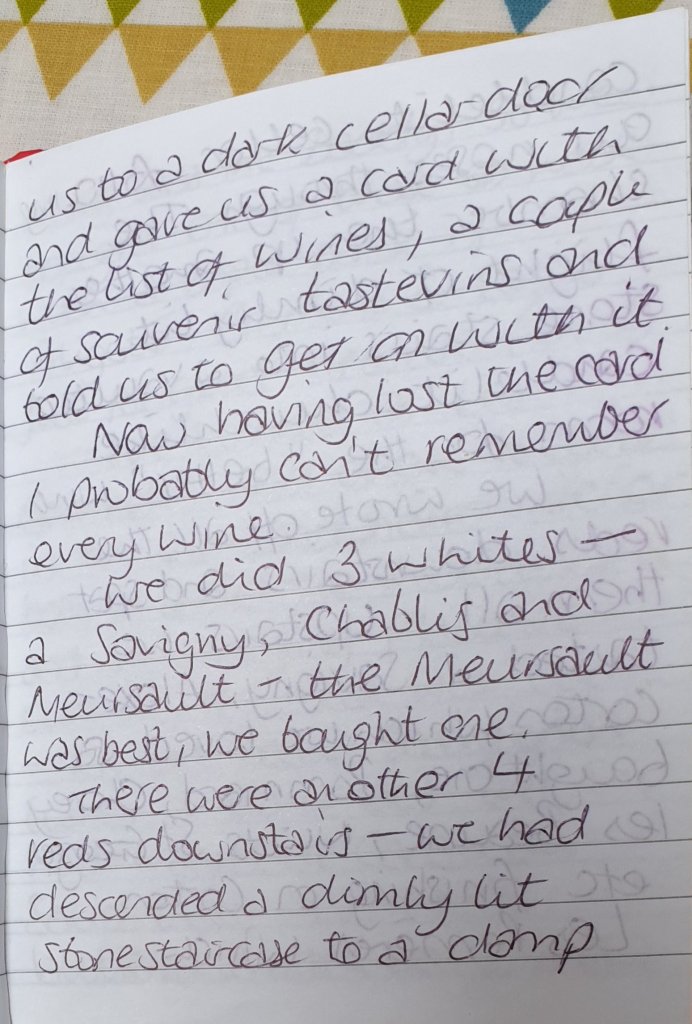 us to a dark cellar door
and gave us a card with
the list of wines, a couple
of souvenir tastevins and
told us to get on with it.
Now having lost the card
I probably can't remember
every wine.
We did 3 whites –
a Savigny, Chablis and
Meursault – the Meursault
was best, we bought one.
There were another 4
reds downstairs – we had
descended a dimly lit
stone staircase to a damp